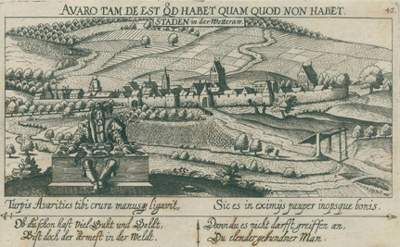 AVARO TAM DE EST QD HABET QUAM QUOD NON HABET.
45
STADEN in der Wetteraw.
Turpis Avarities tibi crura manusq ligavit,
Sic es in eximijs pauper inopsque bonis.
Ob du schon hast viel Guht und Geldt,
Bist doch der ärmest in der Weldt.
Dann du es nicht darffst greiffen an,
Du elender gebundner Man.